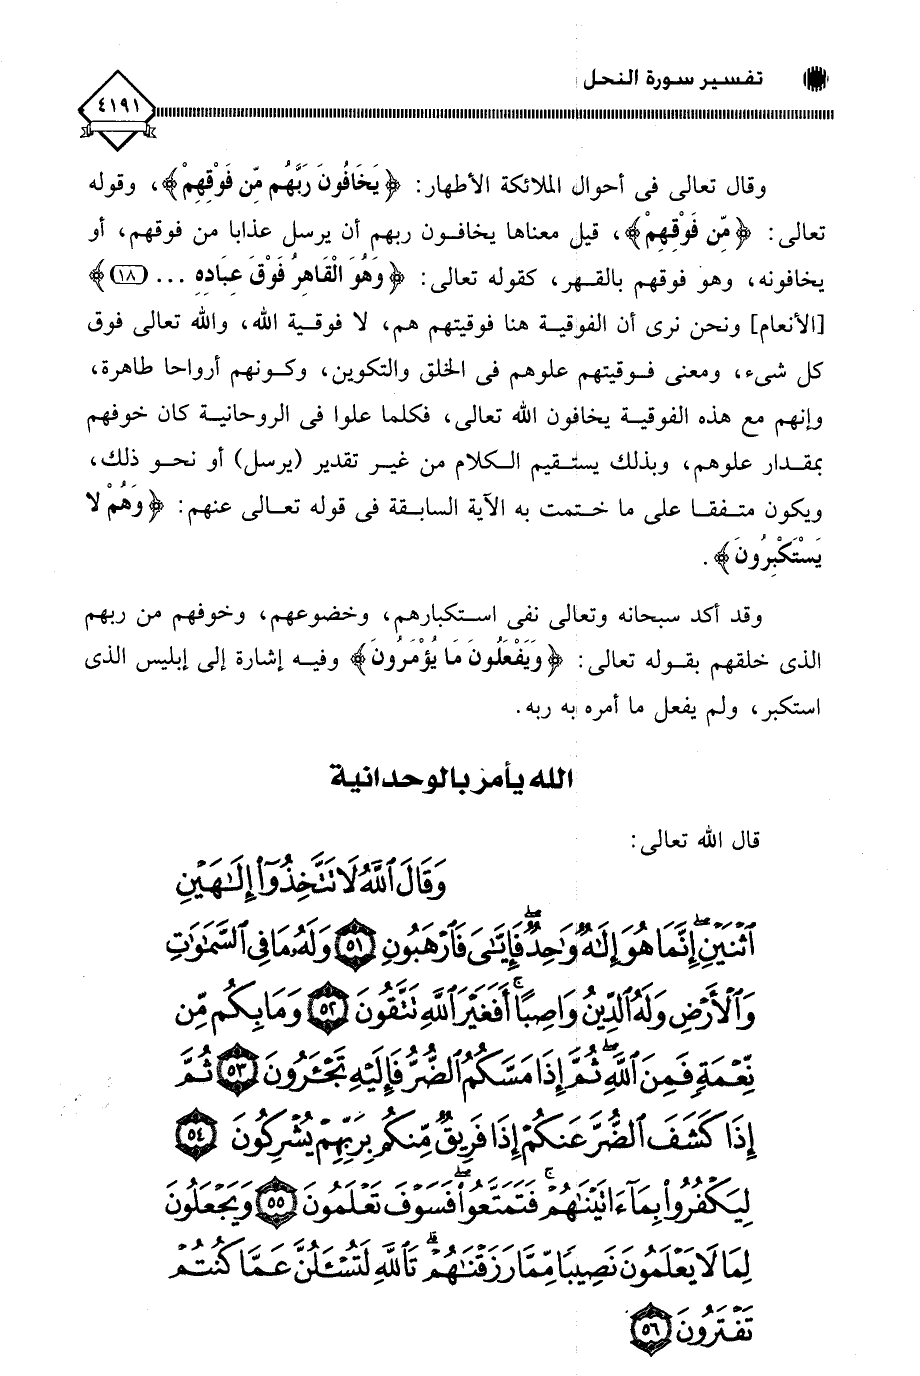 تفسير سورة النحل
٤١٩١
وقال تعالى فى أحوال الملائكة الأطهار: ﴿يَخَافُونَ رَبَّهُم مِّن فَوْقِهِمْ﴾، وقوله
تعالى: ﴿مِّن فَوْقِهِمْ﴾، قيل معناها يخافون ربهم أن يرسل عذابا من فوقهم، أو
يخافونه، وهو فوقهم بالقهر، كقوله تعالى: ﴿وَهُوَ الْقَاهِرُ فَوْقَ عِبَادِهِ ... (١٨)﴾
[الأنعام] ونحن نرى أن الفوقية هنا فوقيتهم هم، لا فوقية الله، والله تعالى فوق
كل شىء، ومعنى فوقيتهم علوهم فى الخلق والتكوين، وكونهم أرواحا طاهرة،
وإنهم مع هذه الفوقية يخافون الله تعالى، فكلما علوا فى الروحانية كان خوفهم
بمقدار علوهم، وبذلك يستقيم الكلام من غير تقدير (يرسل) أو نحو ذلك،
ويكون متفقا على ما ختمت به الآية السابقة فى قوله تعالى عنهم: ﴿وَهُمْ لا
يَسْتَكْبِرُونَ﴾.
وقد أكد سبحانه وتعالى نفى استكبارهم، وخضوعهم، وخوفهم من ربهم
الذى خلقهم بقوله تعالى: ﴿وَيَفْعَلُونَ مَا يُؤْمَرُونَ﴾ وفيه إشارة إلى إبليس الذى
استكبر، ولم يفعل ما أمره به ربه.
الله يأمر بالوحدانية
قال الله تعالى:
وَقَالَ ٱللَّهُ لَا تَتَّخِذُوٓا۟ إِلَٰهَيْنِ
ٱثْنَيْنِ ۖ إِنَّمَا هُوَ إِلَٰهٌ وَٰحِدٌ ۖ فَإِيَّٰىَ فَٱرْهَبُونِ ٥١ وَلَهُۥ مَا فِى ٱلسَّمَٰوَٰتِ
وَٱلْأَرْضِ وَلَهُ ٱلدِّينُ وَاصِبًا ۚ أَفَغَيْرَ ٱللَّهِ تَتَّقُونَ ٥٢ وَمَا بِكُم مِّن
نِّعْمَةٍ فَمِنَ ٱللَّهِ ۖ ثُمَّ إِذَا مَسَّكُمُ ٱلضُّرُّ فَإِلَيْهِ تَجْـَٔرُونَ ٥٣ ثُمَّ
إِذَا كَشَفَ ٱلضُّرَّ عَنكُمْ إِذَا فَرِيقٌ مِّنكُم بِرَبِّهِمْ يُشْرِكُونَ ٥٤
لِيَكْفُرُوا۟ بِمَآ ءَاتَيْنَٰهُمْ ۚ فَتَمَتَّعُوا۟ ۖ فَسَوْفَ تَعْلَمُونَ ٥٥ وَيَجْعَلُونَ
لِمَا لَا يَعْلَمُونَ نَصِيبًا مِّمَّا رَزَقْنَٰهُمْ ۗ تَٱللَّهِ لَتُسْـَٔلُنَّ عَمَّا كُنتُمْ
تَفْتَرُونَ ٥٦